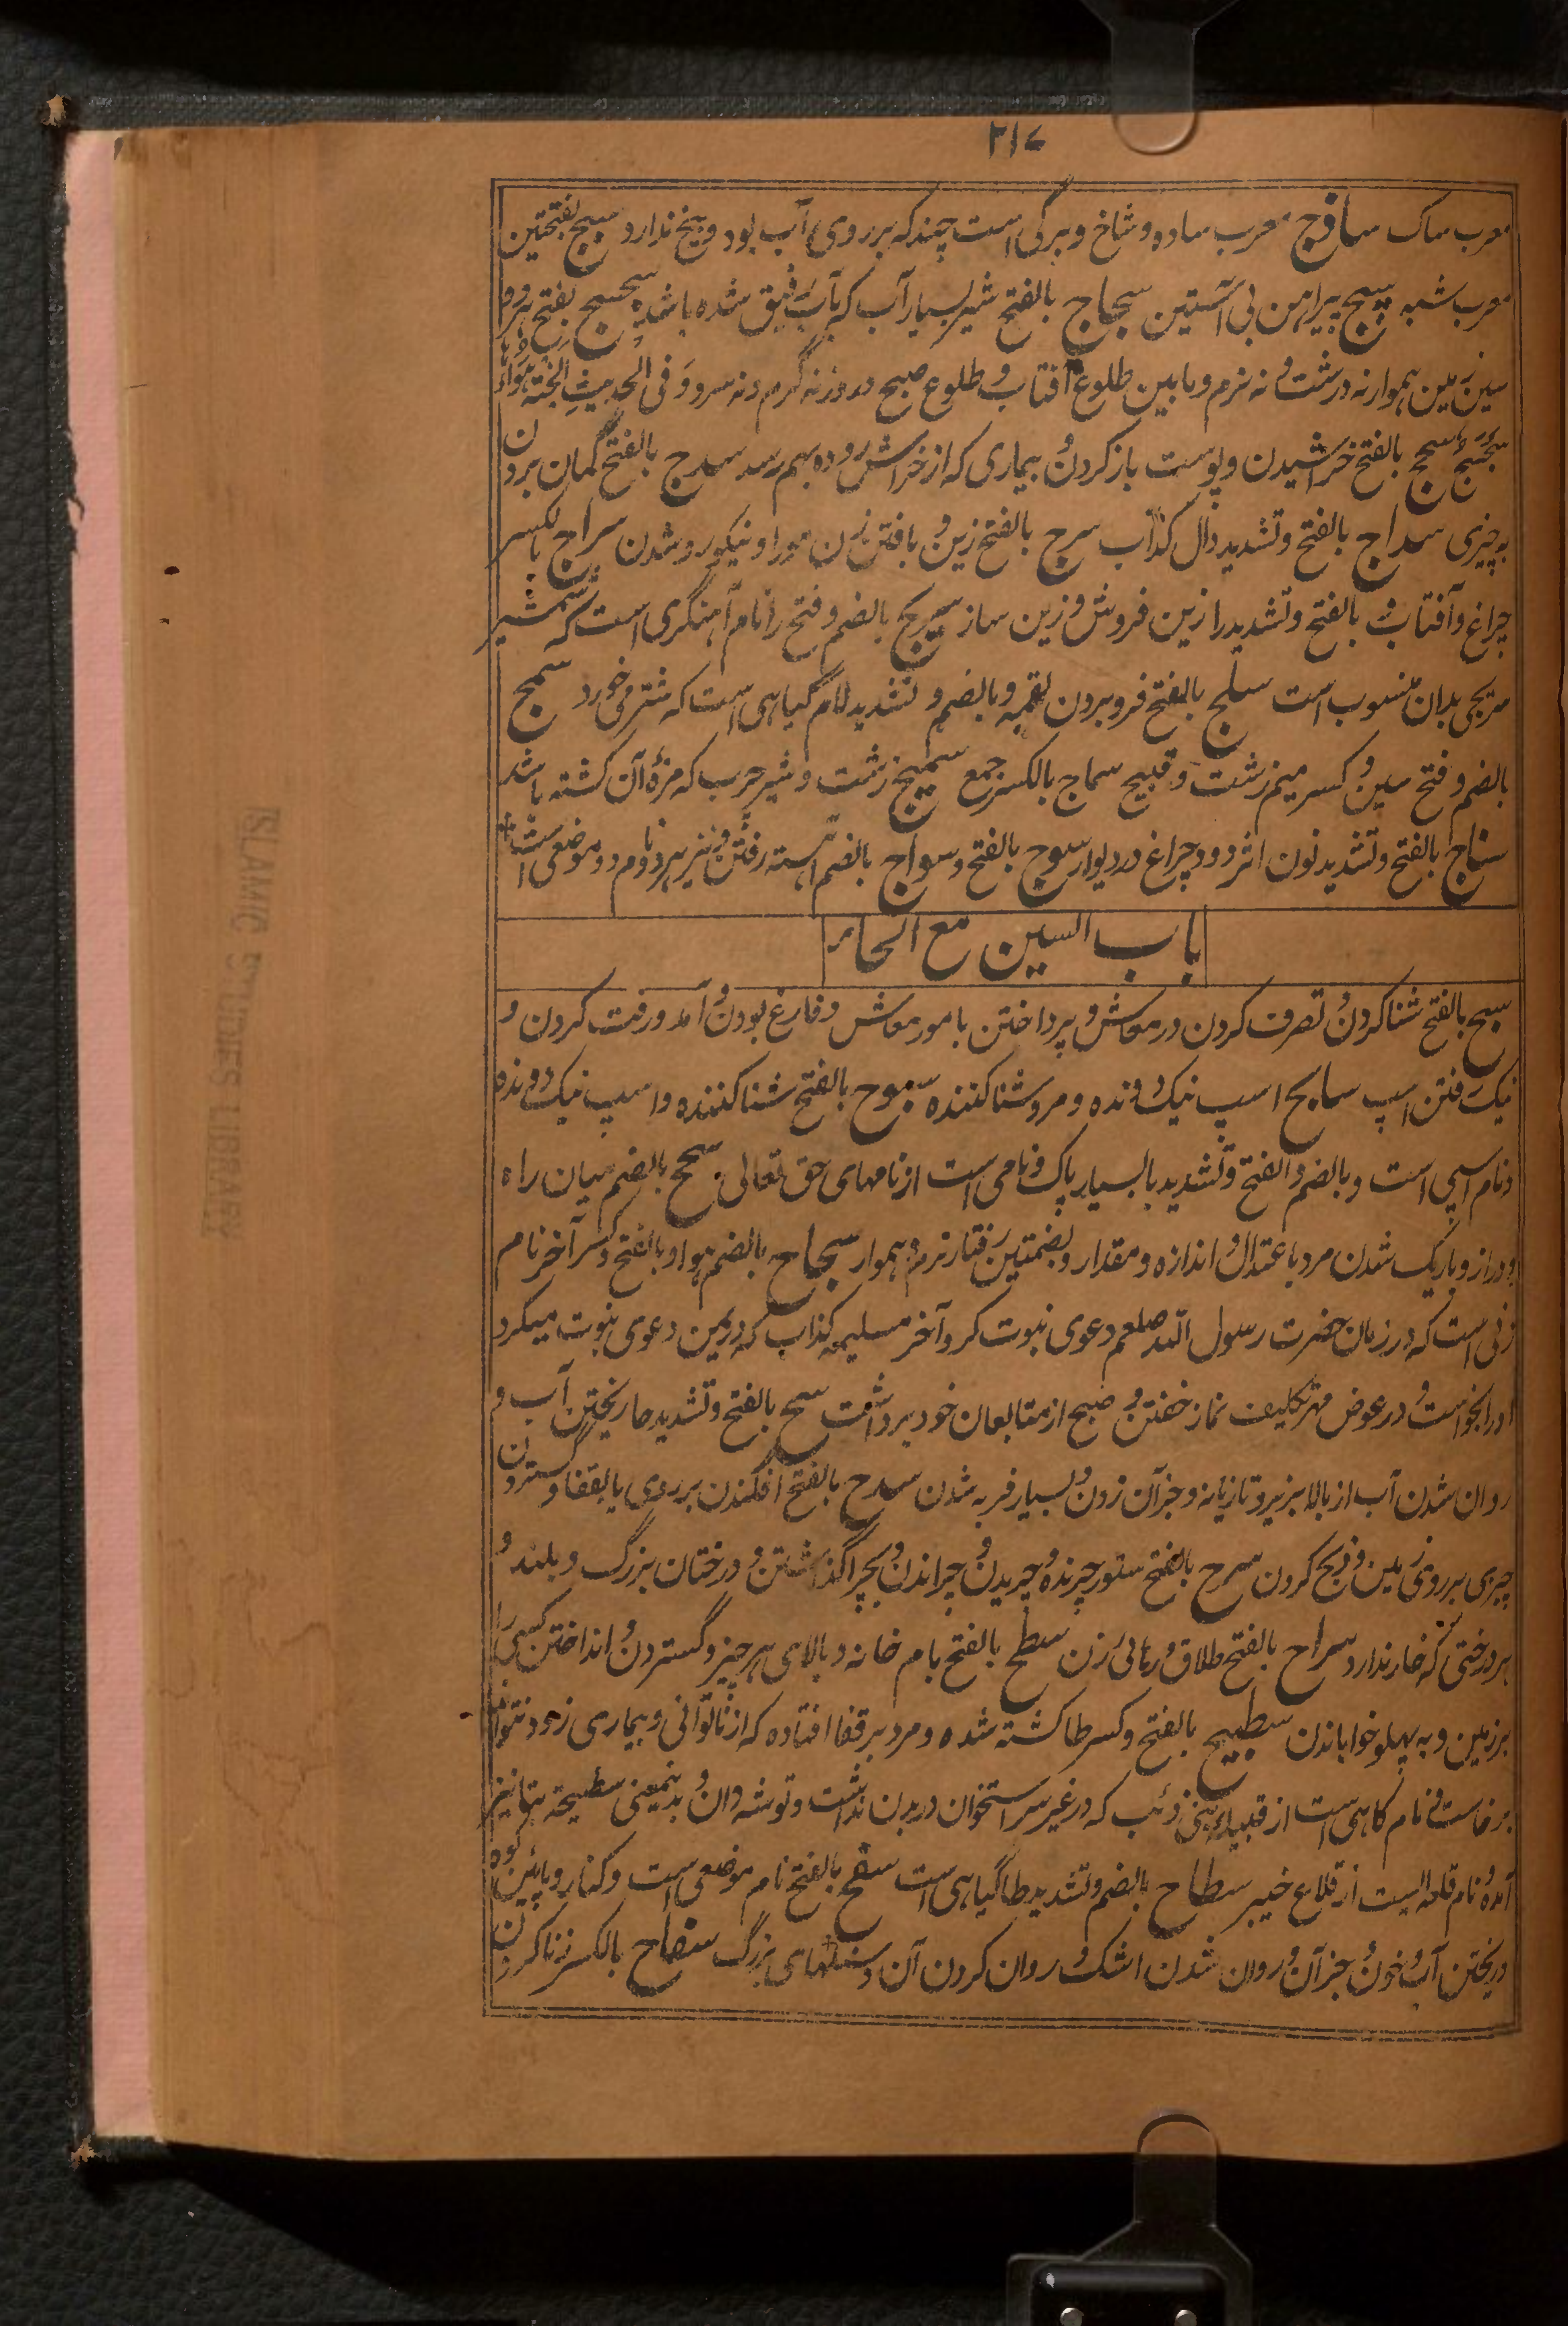 ۲۱۷
معرب ساک ساذج معرب ساده و شاخ و برگی است چند که بر روی آب بود و بیخ ندارد سبج بفتحتین
معرب شبه سبیج پیراهن بی آستین سجاج بالفتح شیر بسیار آب که بآب رقیق شده باشد سجسج بفتح هر دو
سین زمین هموار نه درشت و نه نرم و مابین طلوع آفتاب و طلوع صبح و روز نه گرم و نه سرد و فی الحدیث الجنة هواؤها
سجسج سحج بالفتح خراشیدن و پوست باز کردن و بیماری که از خراش روده بهم رسد سدج بالفتح گمان بردن
به چیزی سداج بالفتح و تشدید دال کذاب سرج بالفتح زین و بافتن زن مو را و نیکو رو شدن سراج بالکسر
چراغ و آفتاب و بالفتح و تشدید را زین فروش و زین ساز سریج بالضم و فتح را نام آهنگری است که شمشیر
سریجی بدان منسوب است سلج بالفتح فرو بردن لقمه و بالضم و تشدید لام گیاهی است که شتر می خورد سمج
بالضم و فتح سین و کسر میم زشت و قبیح سماج بالکسر جمع سمیج زشت و شیر چرب که مزهٔ آن گشته باشد
سناج بالفتح و تشدید نون اثر دود چراغ در دیوار سوج بالفتح و سواج بالضم آهسته رفتن و نیز هر دو نام دو موضعی است
باب السین مع الحاء
سبح بالفتح شنا کردن و تصرف کردن در معاش و پرداختن بامور معاش و فارغ بودن و آمد و رفت کردن و
نیک رفتن اسپ سابح اسپ نیک رونده و مرد شنا کننده سبوح بالفتح شنا کننده و اسپ نیک دونده
و نام اسپی است و بالضم و الفتح و تشدید با بسیار پاک و نامی است از نامهای حق تعالی سجح بالضم میان راه
و دراز و باریک شدن مرد باعتدال و اندازه و مقدار و بضمتین رفتار نرم و هموار سجاح بالضم هوا و بالفتح و کسر آخر نام
زنی است که در زمان حضرت رسول الله صلعم دعوی نبوت کرد و آخر مسلیمه کذاب که در یمن دعوی نبوت میکرد
او را بخواست و در عوض مهر تکلیف نماز خفتن و صبح از متابعان خود برداشت سح بالفتح و تشدید حا ریختن آب و
روان شدن آب از بالا بزیر و تازیانه و جز آن زدن و بسیار فربه شدن سدح بالفتح افکندن بر روی یا بقفا و گستردن
چیزی بر روی زمین و ذبح کردن سرح بالفتح ستور چرنده و چریدن و چراندن و بچرا گذاشتن و درختان بزرگ و بلند و
هر درختی که خار ندارد سراح بالفتح طلاق و رهائی زن سطح بالفتح بام خانه و بالای هر چیز و گستردن و انداختن کسی را
بر زمین و به پهلو خواباندن سطیح بالفتح و کسر طا کشته شده و مرد بر قفا افتاده که از ناتوانی و بیماری زود نتواند
برخاست و نام کاهنی است از قبیلهٔ بنی ذئب که در غیر سر استخوان در بدن نداشت و توشه دان و بدینمعنی سطیحه بتا نیز
آمده و نام قلعه ایست از قلاع خیبر سطاح بالضم و تشدید طا گیاهی است سفح بالفتح نام موضعی است و کنار و پائین کوه
و ریختن آب و خون و جز آن و روان شدن اشک و روان کردن آن و سنگهای بزرگ سفاح بالکسر زنا کردن
ISLAMIC STUDIES LIBRARY